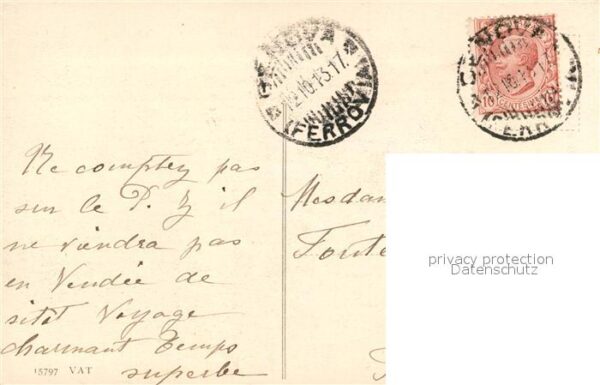 GENOVA
12.10.13.17
(FERROVIA)
GENOVA
12.10.13.17
(FERROVIA)
10
Ne comptez pas
sur le P. Z il
ne viendra pas
en Vendée de
sitôt Voyage
charmant temps
superbe
Mesdam
Fonte
privacy protection
Datenschutz
15797 VAT